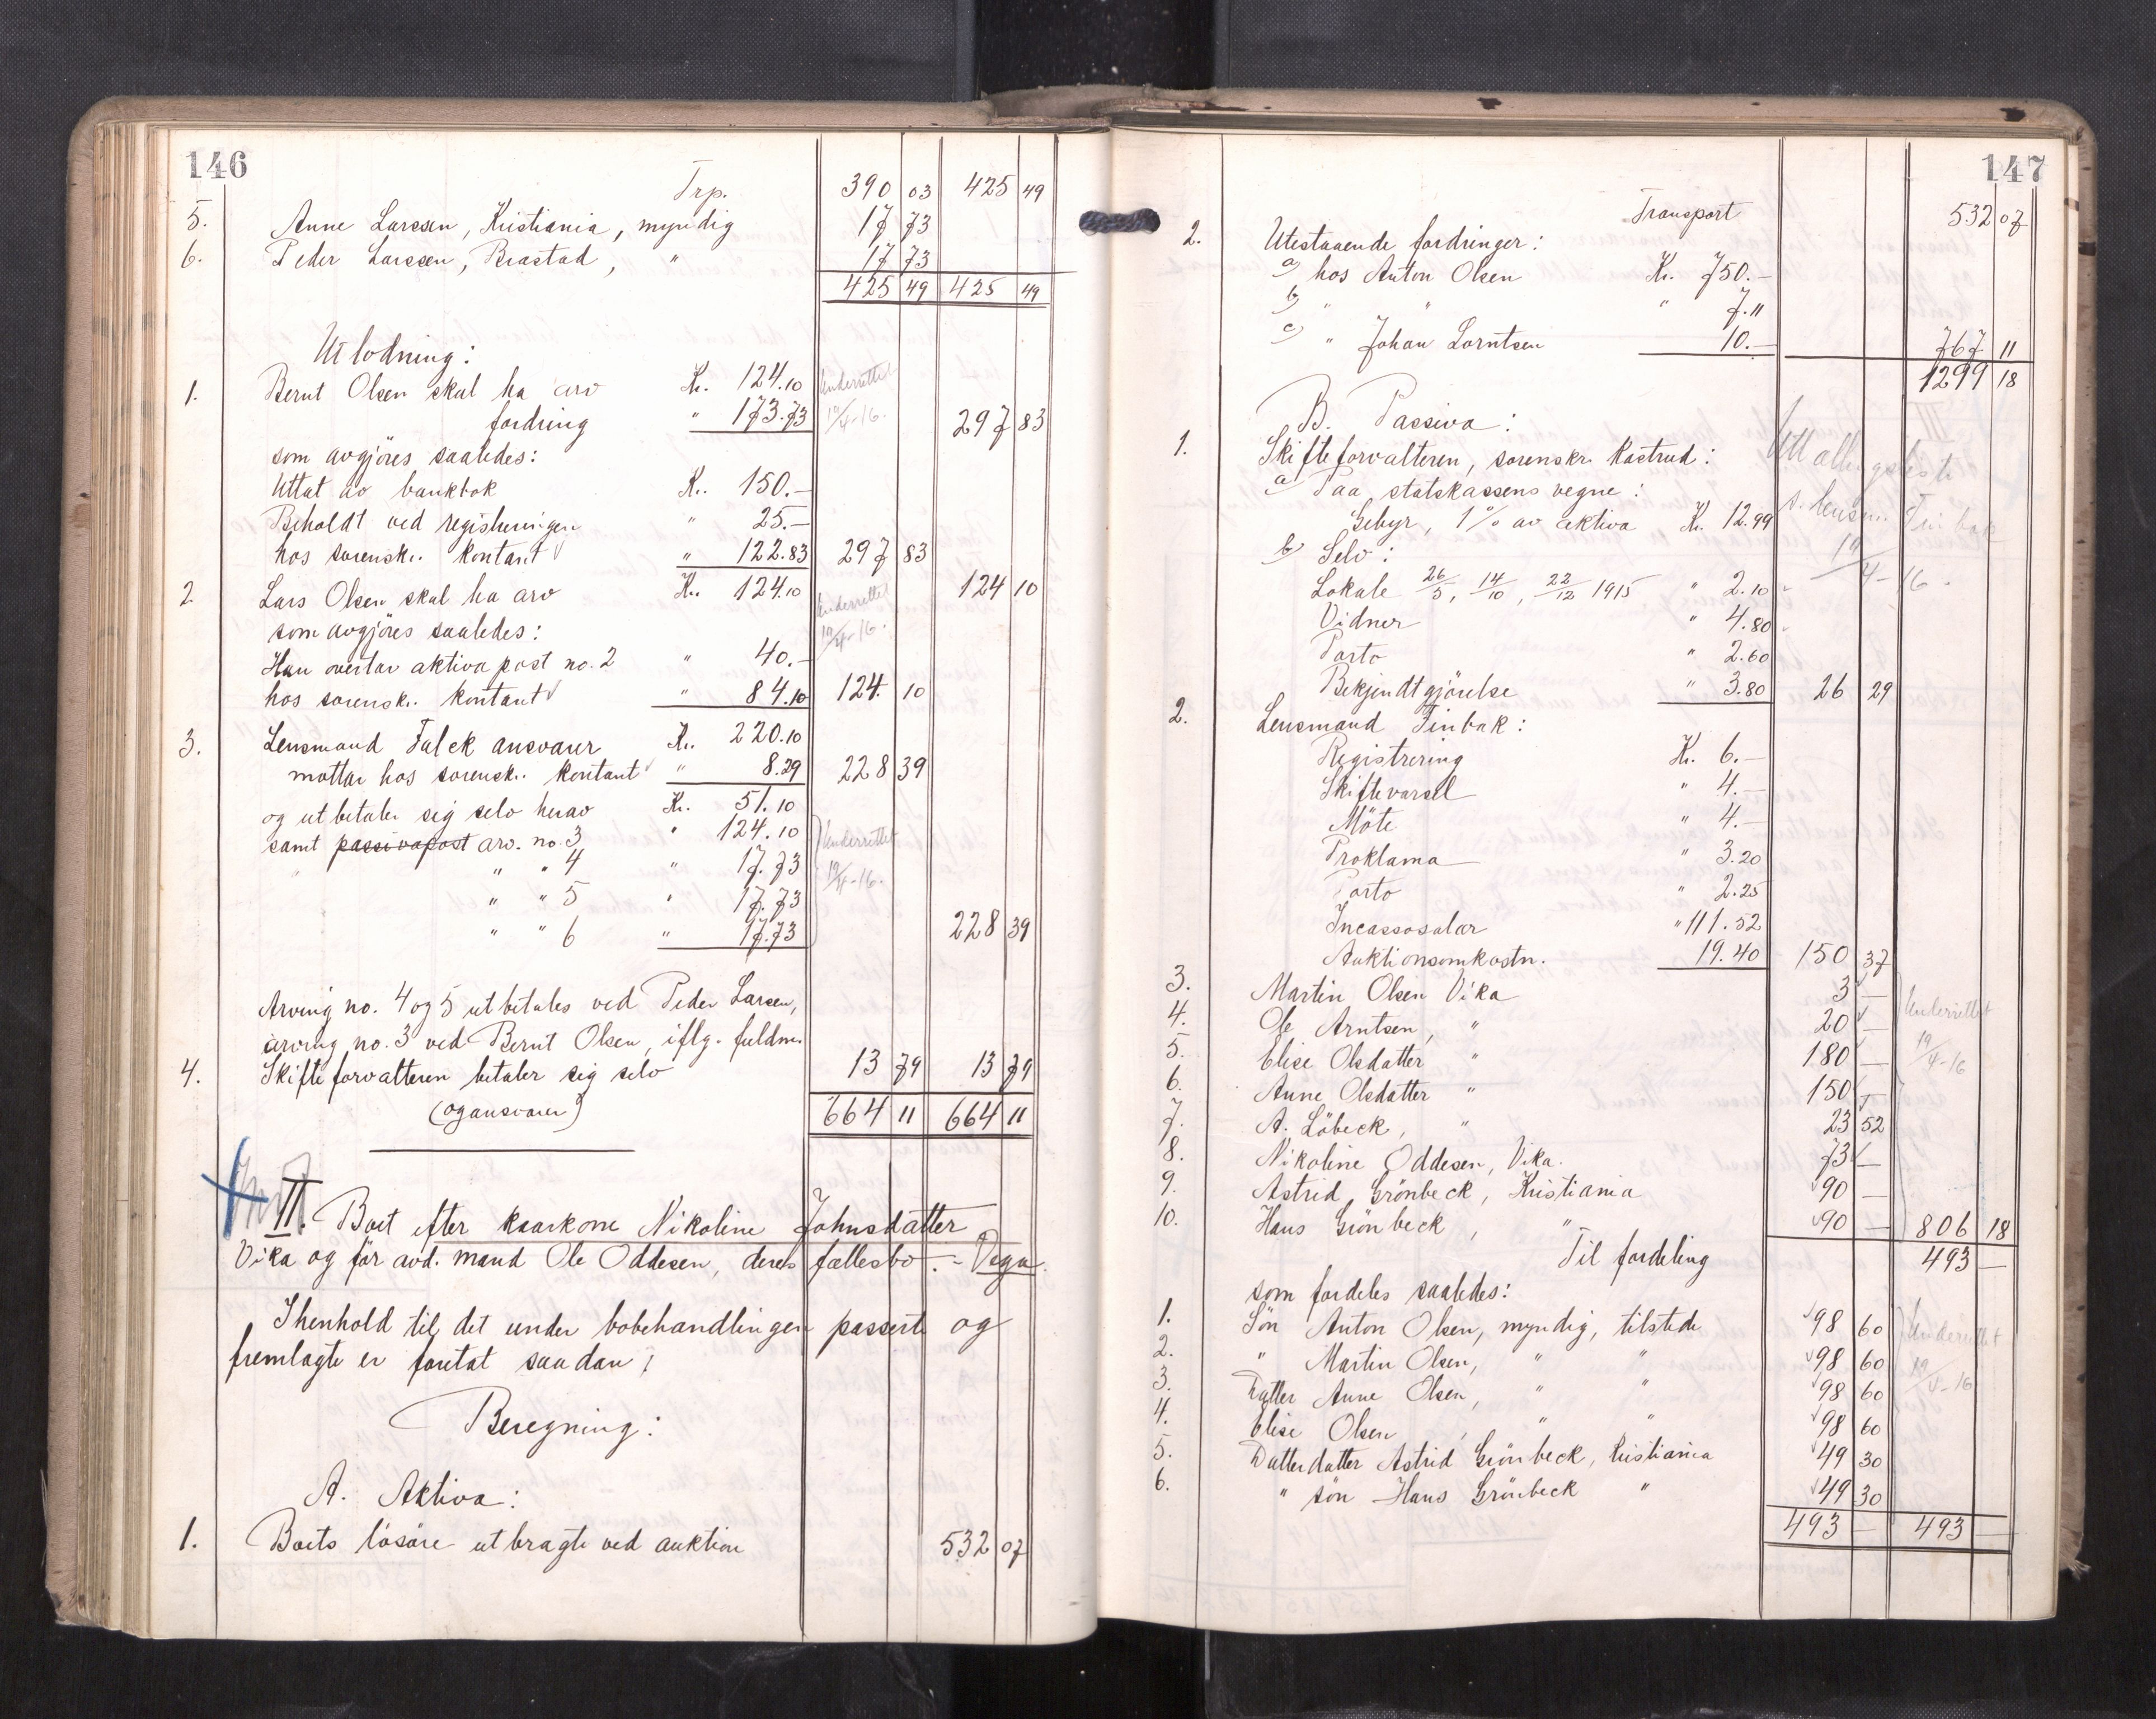 146
Trp. 390 03 425 49
5. Anne Larssen, Kristiania, myndig 17 73
6. Peder Larssen, Brastad, " 17 73
425 49 425 49
Utlodning:
1. Bernt Olsen skal ha arv Kr. 124.10 Underrettet
fordring " 173.73 19/4-16. 297 83
som avgjöres saaledes:
Uttat av bankbok Kr. 150.-
Beholdt ved registreringen " 25.-
hos sorenskr. kontant " 122.83 297 83
2 Lars Olsen skal ha arv Kr. 124.10 124 10
som avgjöres saaledes: Underrettet 19/4-16.
Han overtar aktiva post no. 2 " 40.-
hos sorenskr. kontant " 84.10 124. 10
3. Lensmand Falck ansvarer Kr. 220.10
mottar hos sorenskr. kontant " 8.29 228 39
og utbetaler sig selv herav Kr. 51.10
samt passivapost arv. no. 3 " 124.10 Underrettet
" " 4 " 17.73 19/4-16.
" " 5 " 17.73
" " 6 " 17.73 228 39
Arving no. 4 og 5 utbetales ved Peder Larsen,
arving no. 3 ved Bernt Olsen, iflg. fuldm.
4. Skifteforvalteren betaler sig selv 13 79 13 79
(og ansvarer) 664 11 664 11
II. Boet efter kaarkone Nikoline Johnsdatter
Vika og för avd. mand Ole Oddesen, deres fællesbo. - Vega.
I henhold til det under bobehandlingen passerte og
fremlagte er foretat saadan:
Beregning:
A. Aktiva:
1. Boets lösöre utbragte ved auktion 532 07
147
Transport 532 07
2. Utestaaende fordringer:
a) hos Anton Olsen Kr. 750.-
b) " " " 7.11
c) " Johan Lorntsen 10.- 767 11
1299 18
B. Passiva:
1. Skifteforvalteren, sorenskr. Kastrud:
a) Paa statskassens vegne:
Gebyr, 1% av aktiva Kr. 12.99
Utbetalingsliste s. lensm. Finbak 19/4-16.
b) Selv:
Lokale 26/5, 14/10, 22/12 1915 " 2.10
Vidner " 4.80
Porto " 2.60
Bekjendtgjörelse " 3.80 26 29
2. Lensmand Finbak:
Registrering Kr. 6.-
Skiftevarsel " 4.-
Möte " 4.-
Proklama " 3.20
Porto " 2.25
Incassosalær " 111.52
Auktionsomkostn. 19.40 150 37
3. Martin Olsen Vika 3 -
4. Ole Arntsen, " 20 - Underrettet
5. Elise Olsdatter " 180 - 19/4-16
6. Anne Olsdatter " 150 -
7. A. Löbeck, " 23 52
8. Nikoline Oddesen, Vika. 73 -
9. Astrid Grönbeck, Kristiania 90 -
10. Hans Grönbeck, " 90 - 806 18
Til fordeling 493 -
som fordeles saaledes:
1. Sön Anton Olsen, myndig, tilstede 98 60 Underrettet
2. " Martin Olsen, " " 98 60 19/4-16
3. Datter Anne Olsen, " " 98 60
4. Elise Olsen, " " 98 60
5. Datterdatter Astrid Grönbeck, Kristiania 49 30
6. " sön Hans Grönbeck " 49 30
493 - 493 -